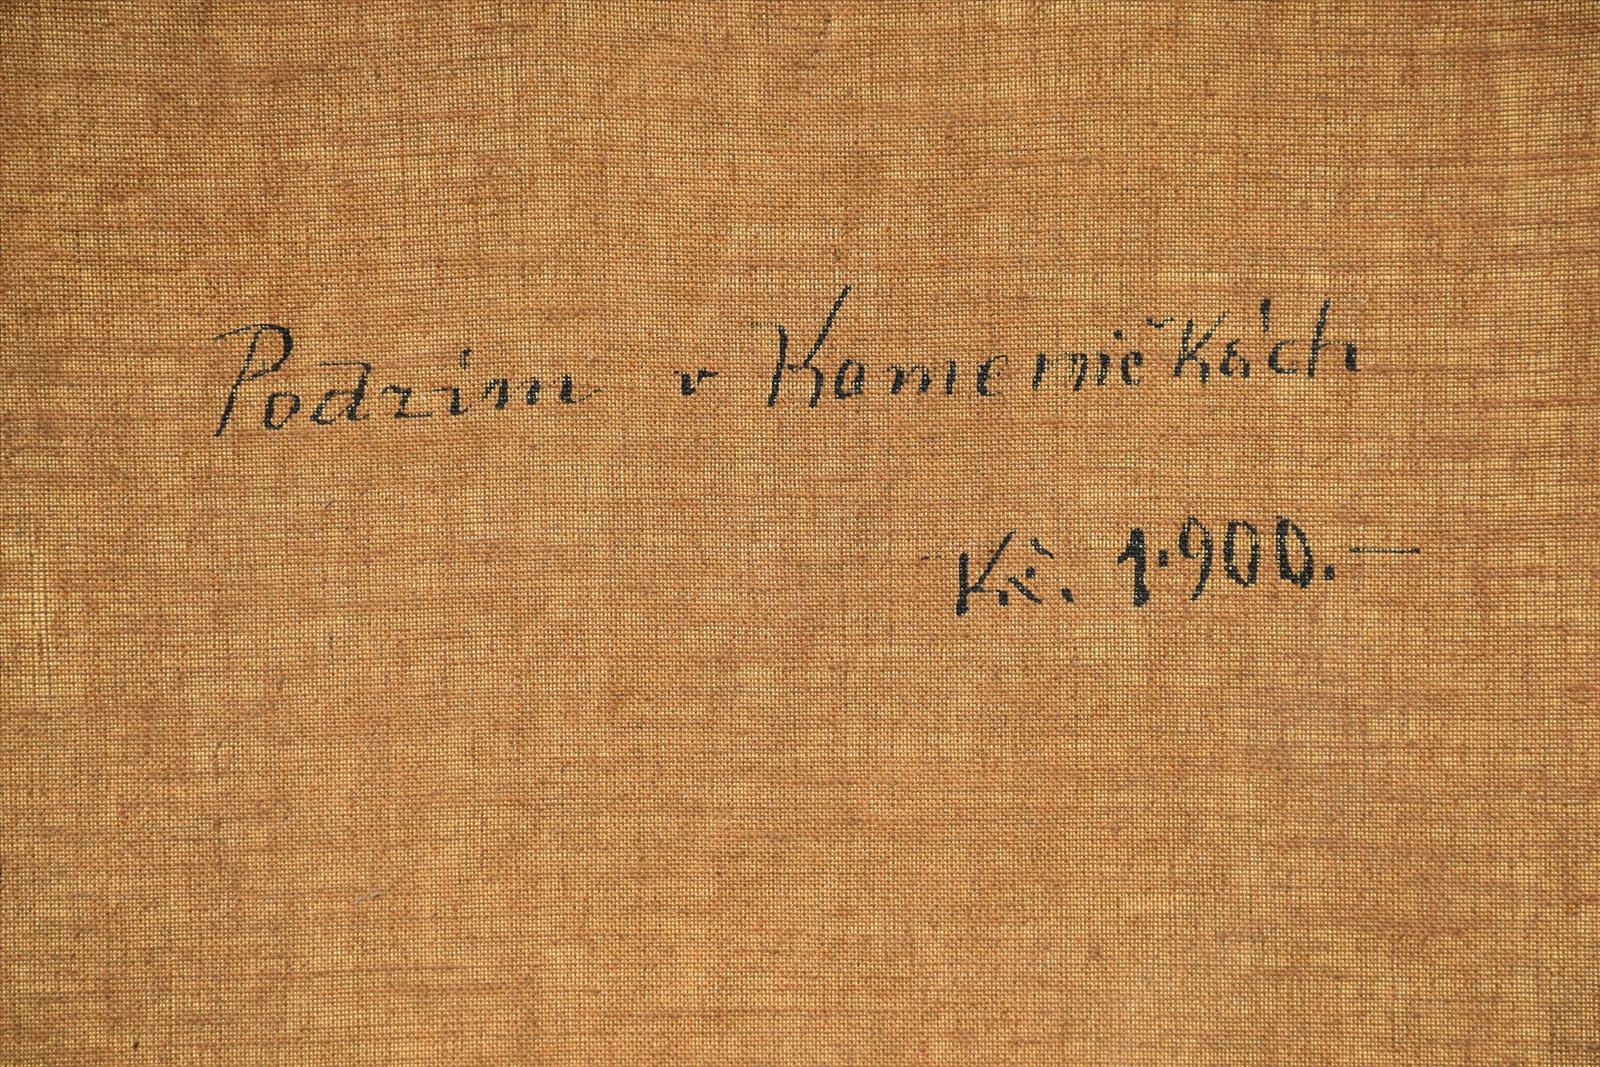 Podzim v Kameničkách
Kč. 1.900.—